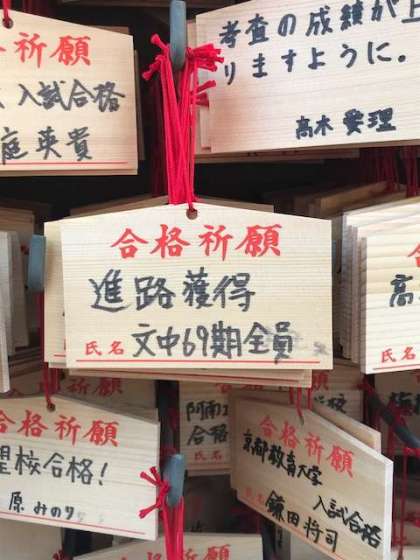 合格祈願
入試合格
庭英貴
考査の成績が上
りますように.
高木愛理
合格祈願
進路獲得
氏名 文中69期全員
合格祈願
望校合格!
原みのり
阿南工
合格
合格祈願
京都教育大学
入試合格
氏名 鎌田将司
高
氏名